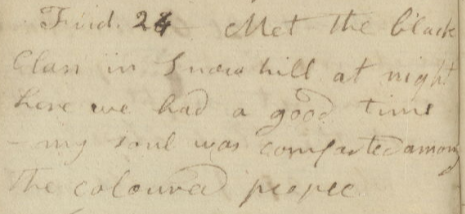 Frid. 24 Met the black
Class in Snow hill at night
here we had a good time
- my soul was comforted among
the coloured people